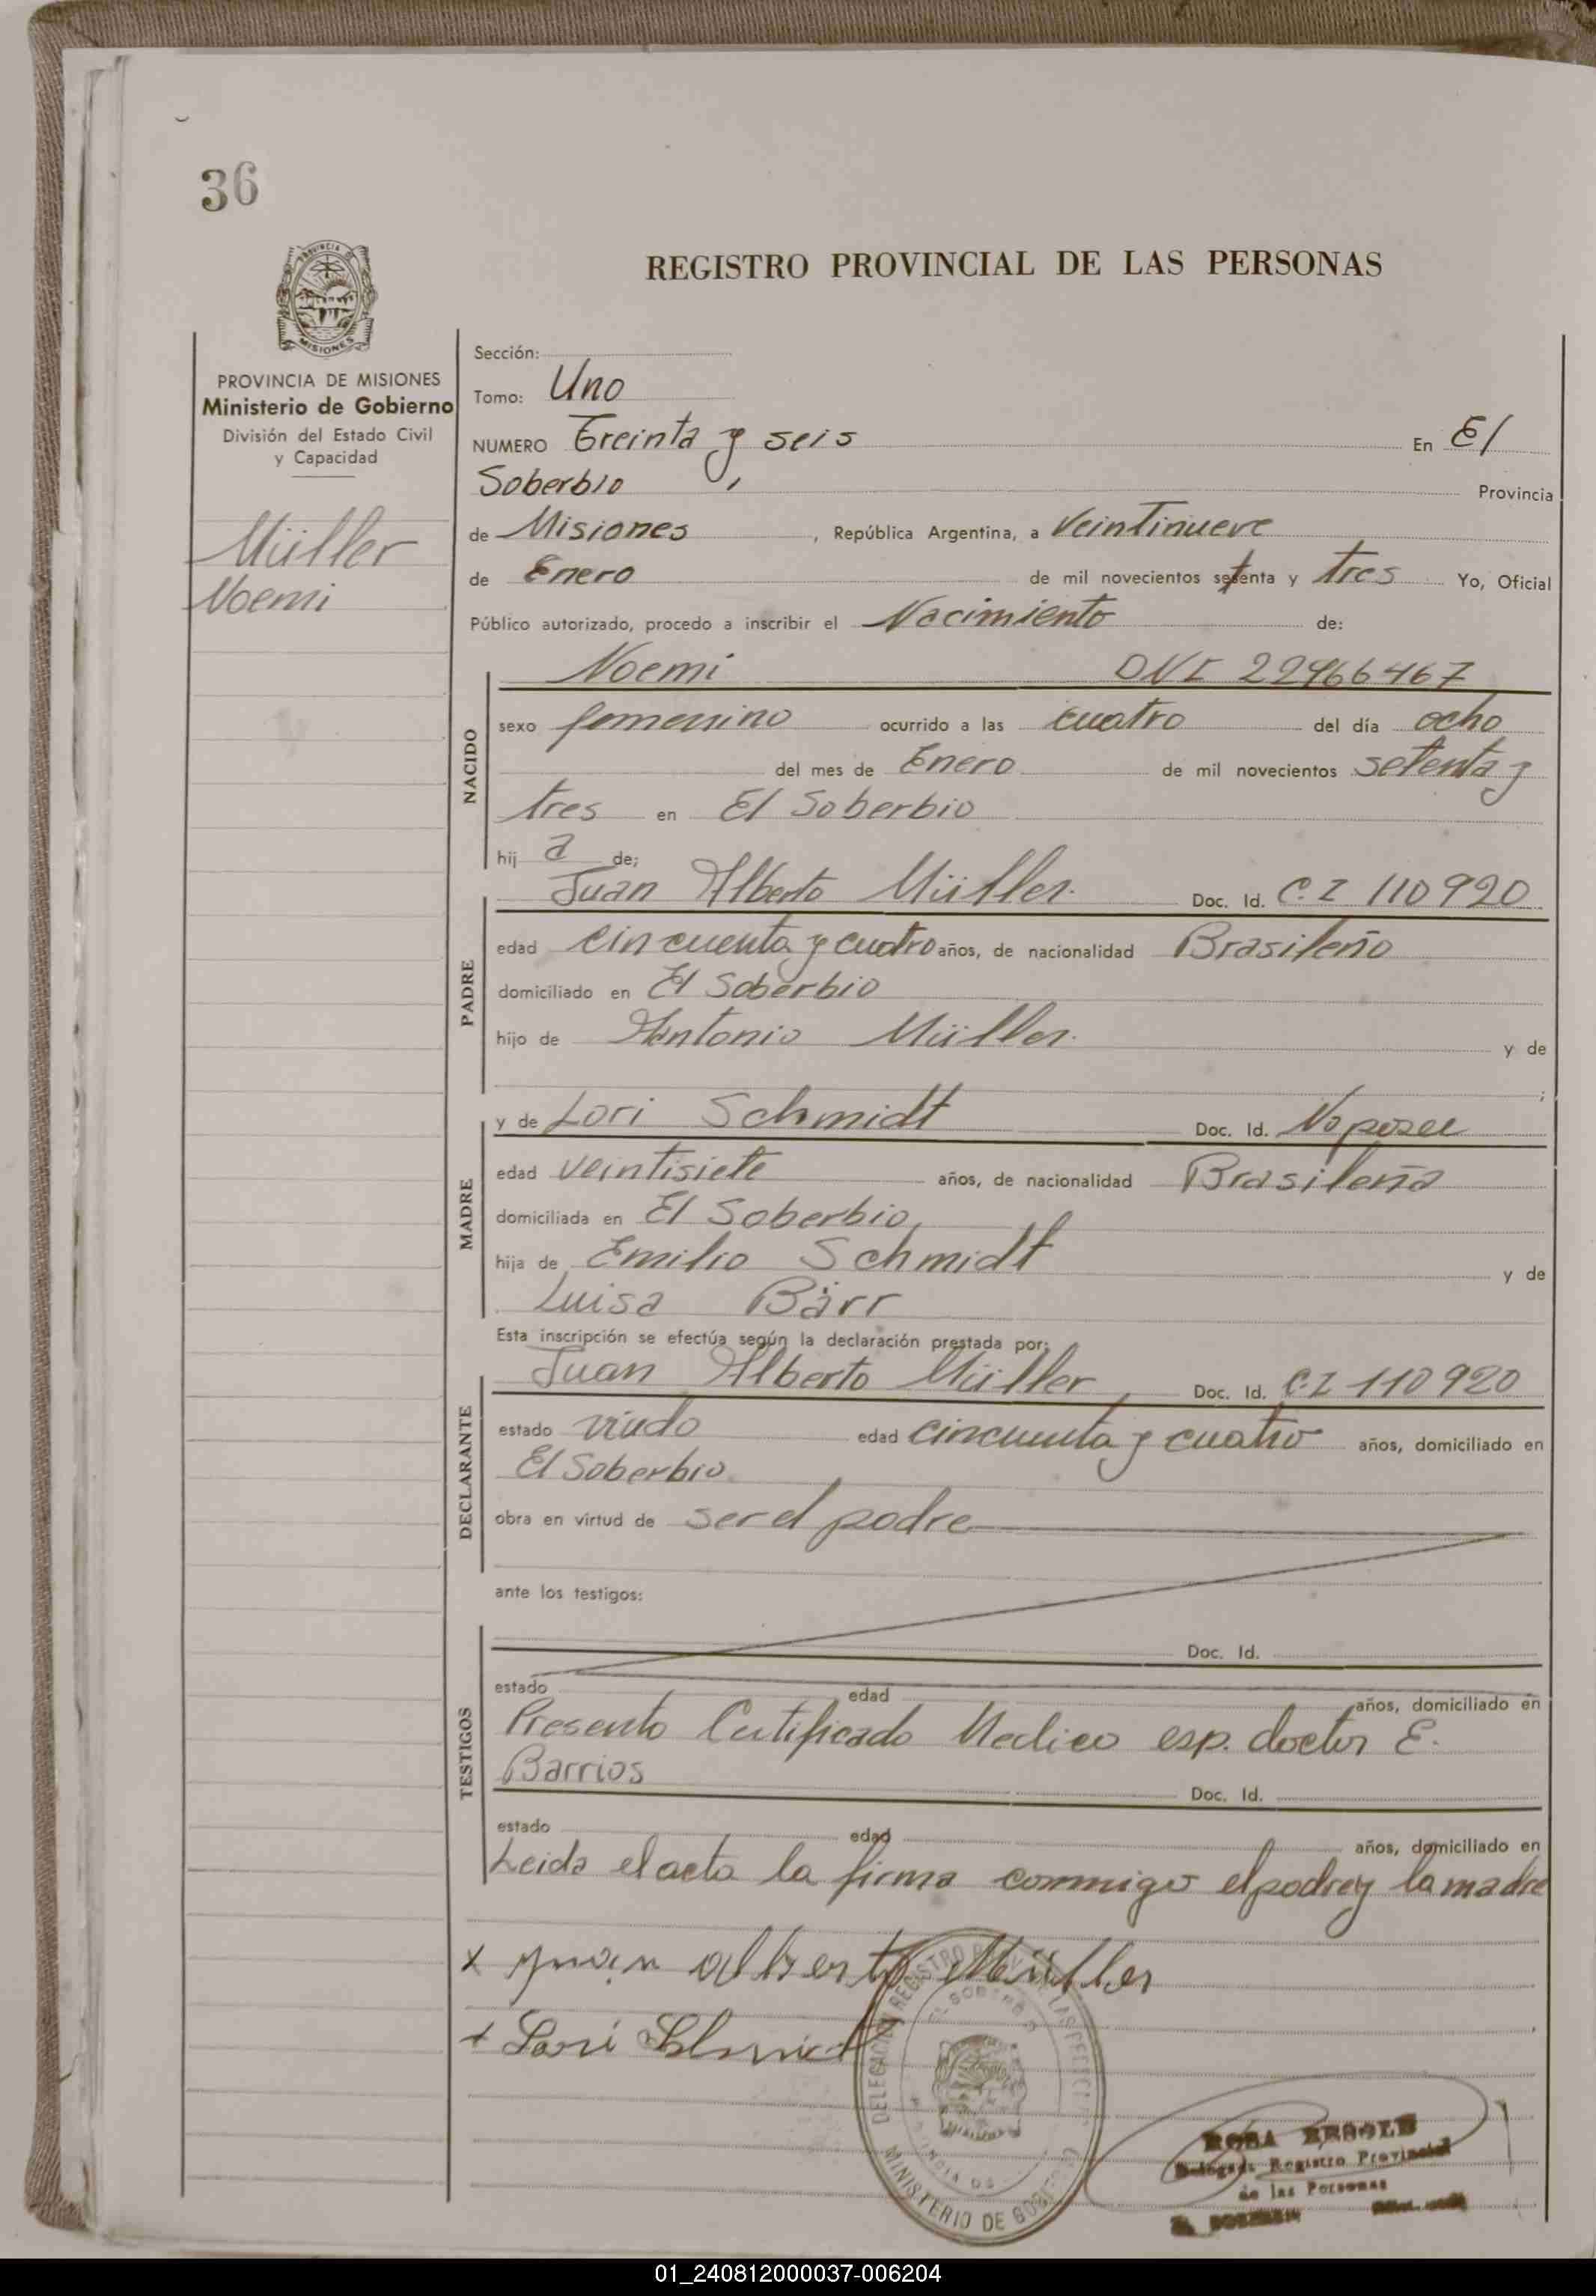 36
REGISTRO PROVINCIAL DE LAS PERSONAS
PROVINCIA DE
MISIONES
PROVINCIA DE MISIONES
Ministerio de Gobierno
División del Estado Civil
y Capacidad
Müller
Noemi
Sección:
Tomo: Uno
NUMERO Treinta y seis En El
Soberbio, Provincia
de Misiones, República Argentina, a Veintinueve
de Enero de mil novecientos setenta y tres Yo, Oficial
Público autorizado, procedo a inscribir el Nacimiento de:
NACIDO
Noemi DNI 22966467
sexo femenino ocurrido a las cuatro del día ocho
del mes de Enero de mil novecientos setenta y
tres en El Soberbio
hij a de;
PADRE
Juan Alberto Müller. Doc. Id. C.I 110920
edad cincuenta y cuatro años, de nacionalidad Brasileño
domiciliado en El Soberbio
hijo de Antonio Müller. y de
;
MADRE
y de Lori Schmidt Doc. Id. No posee
edad veintisiete años, de nacionalidad Brasileña
domiciliada en El Soberbio,
hija de Emilio Schmidt y de
Luisa Bärr
Esta inscripción se efectúa según la declaración prestada por:
DECLARANTE
Juan Alberto Müller, Doc. Id. C.I 110920
estado viudo edad cincuenta y cuatro años, domiciliado en
El Soberbio
obra en virtud de ser el padre
ante los testigos:
TESTIGOS
Doc. Id.
estado edad años, domiciliado en
Presento Certificado Medico esp. doctor E.
Barrios Doc. Id.
estado edad años, domiciliado en
Leida el acta la firma conmigo el padre y la madre
x Juan alberto Müller
x Lori Schmidt
DELEGACION REGISTRO DE LAS
EL SOBERBIO
MINISTERIO DE GOBIERNO
ROSA
Delegada Registro Provincial
de las Personas
EL SOBERBIO
01_240812000037-006204